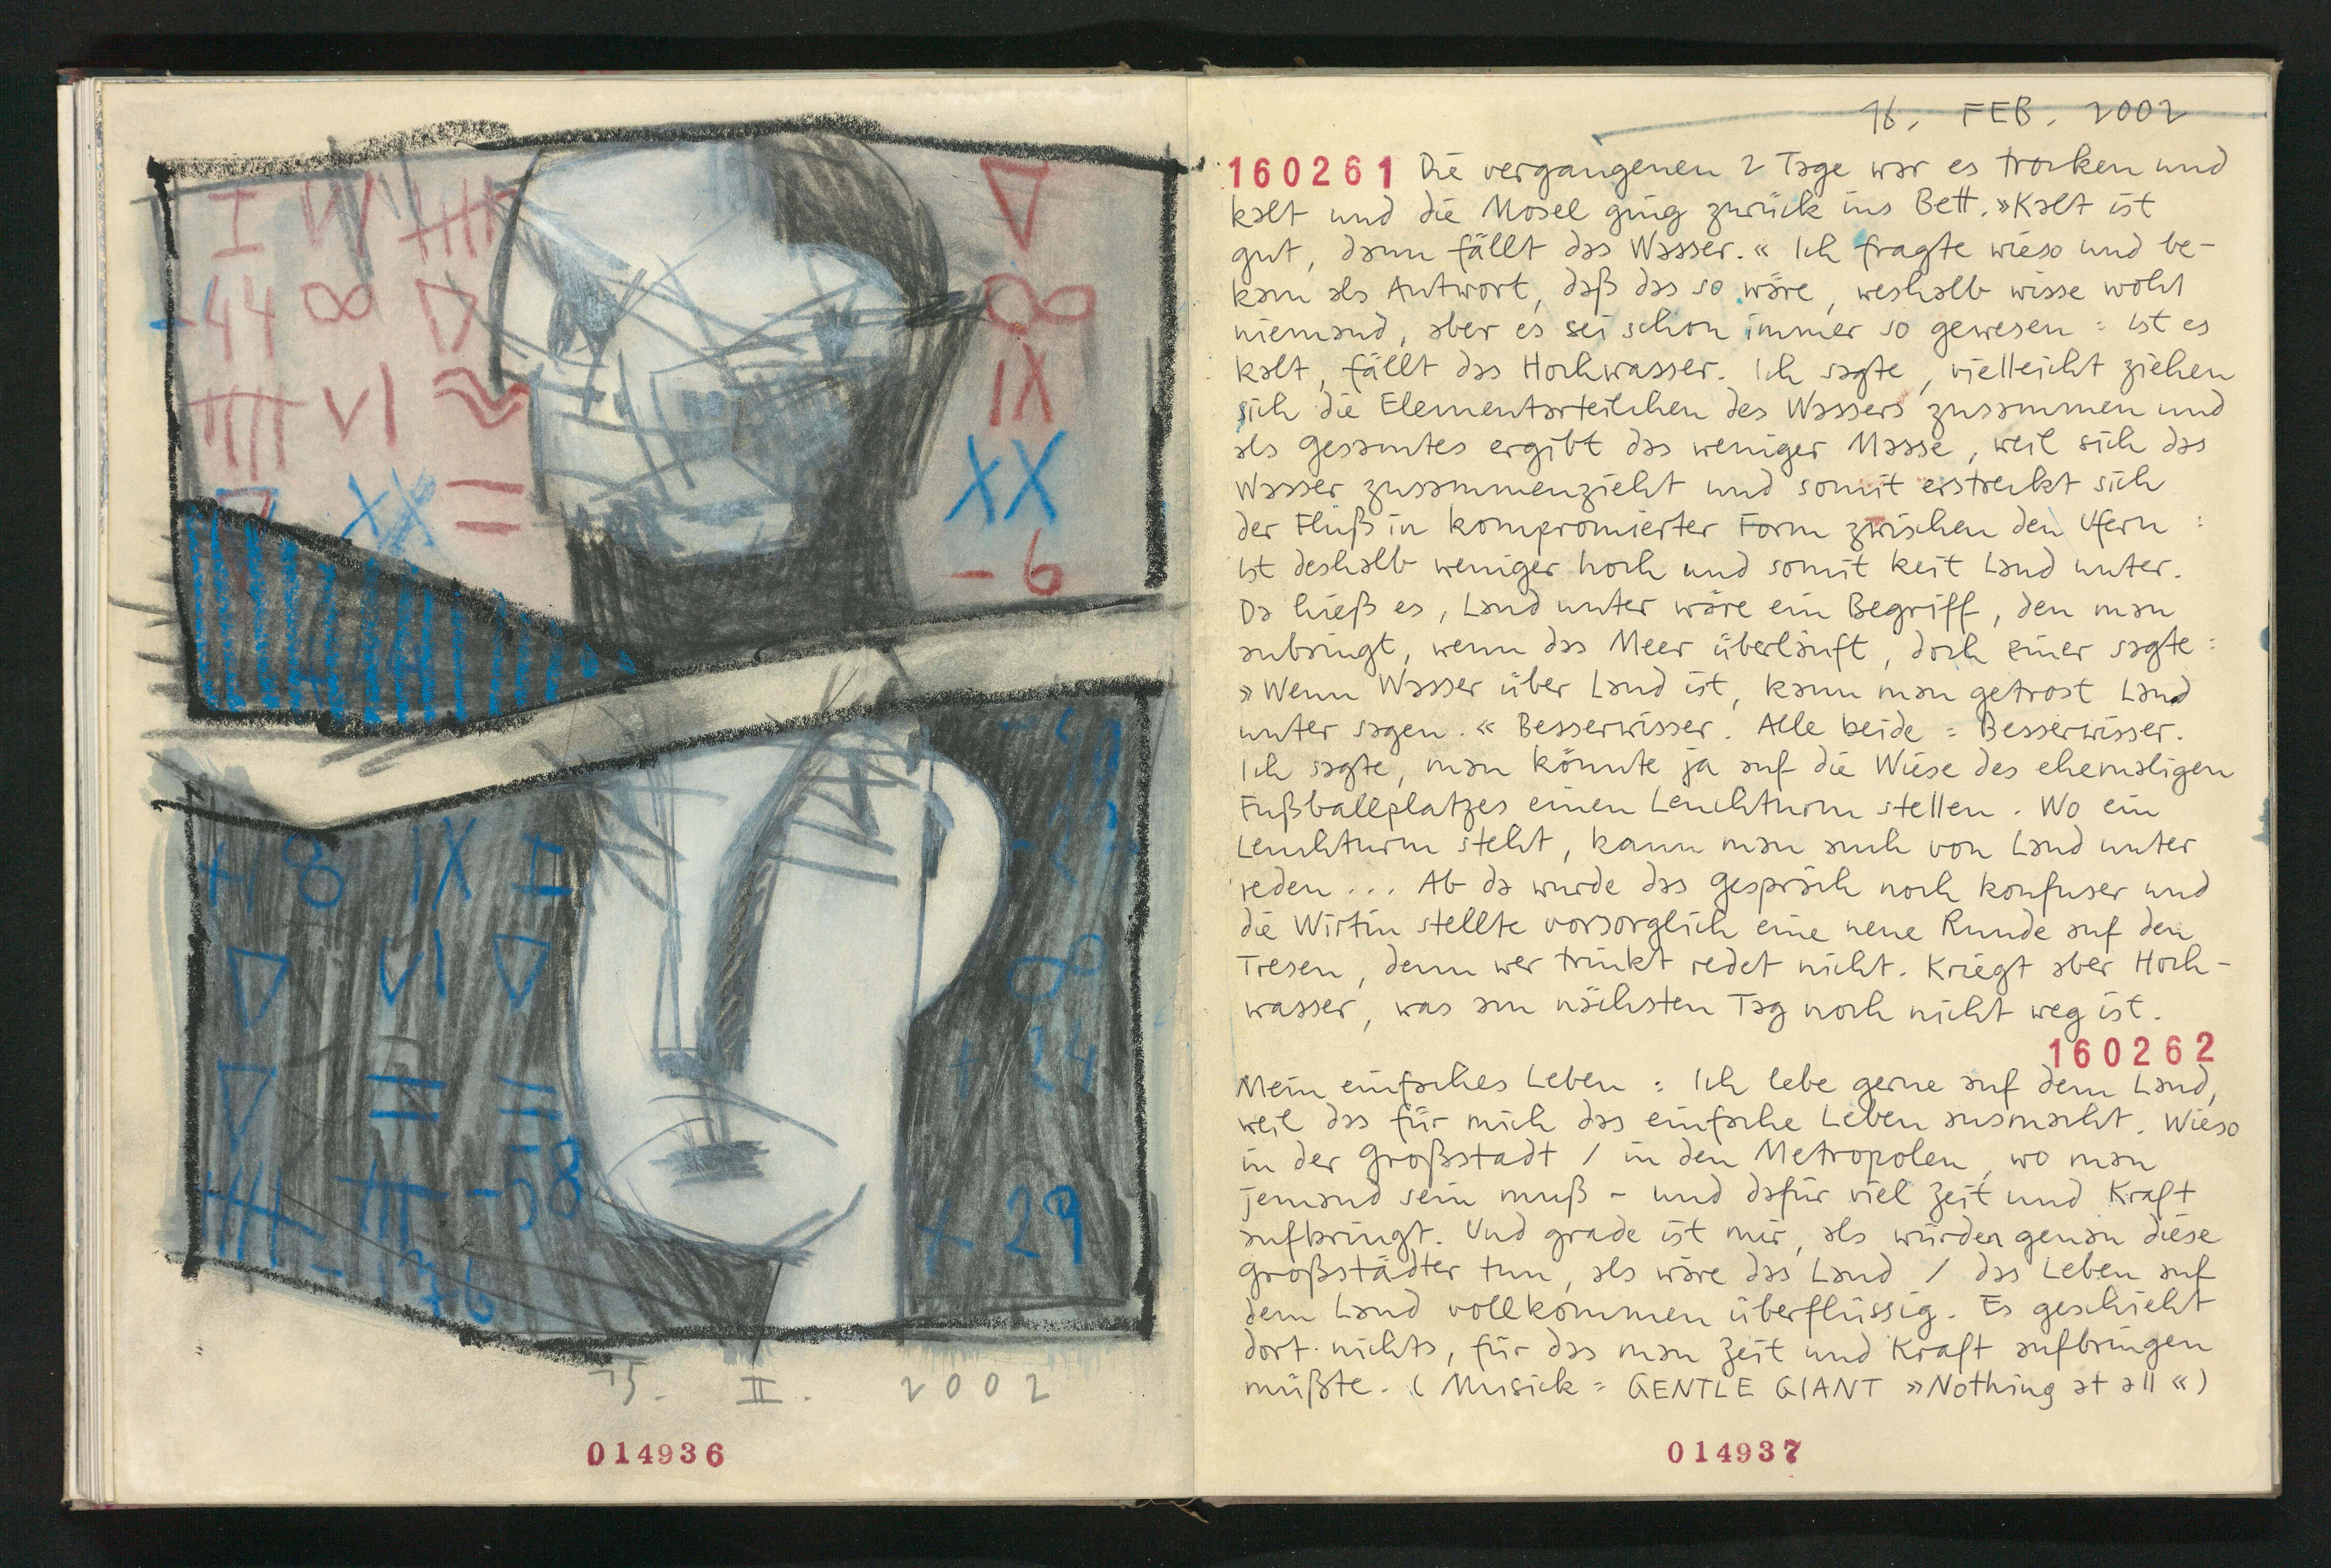 I VI
-44 ∞ ▽
VI ≈
▽ XX =
▽
∞
IX
XX
- 6
+ 8 IX I
▽ VI ▽
▽
-58
- 176
∞
+ 24
+ 29
15. II. 2002
014936
16. FEB. 2002
160261 Die vergangenen 2 Tage war es trocken und
kalt und die Mosel ging zurück ins Bett. »Kalt ist
gut, dann fällt das Wasser.« Ich fragte wieso und be-
kam als Antwort, daß das so wäre, weshalb wisse wohl
niemand, aber es sei schon immer so gewesen = ist es
kalt, fällt das Hochwasser. Ich sagte, vielleicht ziehen
sich die Elementarteilchen des Wassers zusammen und
als gesamtes ergibt das weniger Masse, weil sich das
Wasser zusammenzieht und somit erstreckt sich
der Fluß in kompromierter Form zwischen den Ufern :
ist deshalb weniger hoch und somit keit Land unter.
Da hieß es, Land unter wäre ein Begriff, den man
anbringt, wenn das Meer überläuft, doch einer sagte :
»Wenn Wasser über Land ist, kann man getrost Land
unter sagen.« Besserwisser. Alle beide = Besserwisser.
Ich sagte, man könnte ja auf die Wiese des ehemaligen
Fußballplatzes einen Leuchturm stellen. Wo ein
Leuchturm steht, kann man auch von Land unter
reden ... Ab da wurde das Gespräch noch konfuser und
die Wirtin stellte vorsorglich eine neue Runde auf den
Tresen, denn wer trinkt redet nicht. Kriegt aber Hoch-
wasser, was am nächsten Tag noch nicht weg ist.
160262
Mein einfaches Leben = Ich lebe gerne auf dem Land,
weil das für mich das einfache Leben ausmacht. Wieso
in der Großstadt / in den Metropolen, wo man
jemand sein muß - und dafür viel Zeit und Kraft
aufbringt. Und grade ist mir, als würden genau diese
Großstädter tun, als wäre das Land / das Leben auf
dem Land vollkommen überflüssig. Es geschieht
dort nichts, für das man Zeit und Kraft aufbringen
müßte. (Musick = GENTLE GIANT »Nothing at all«)
014937